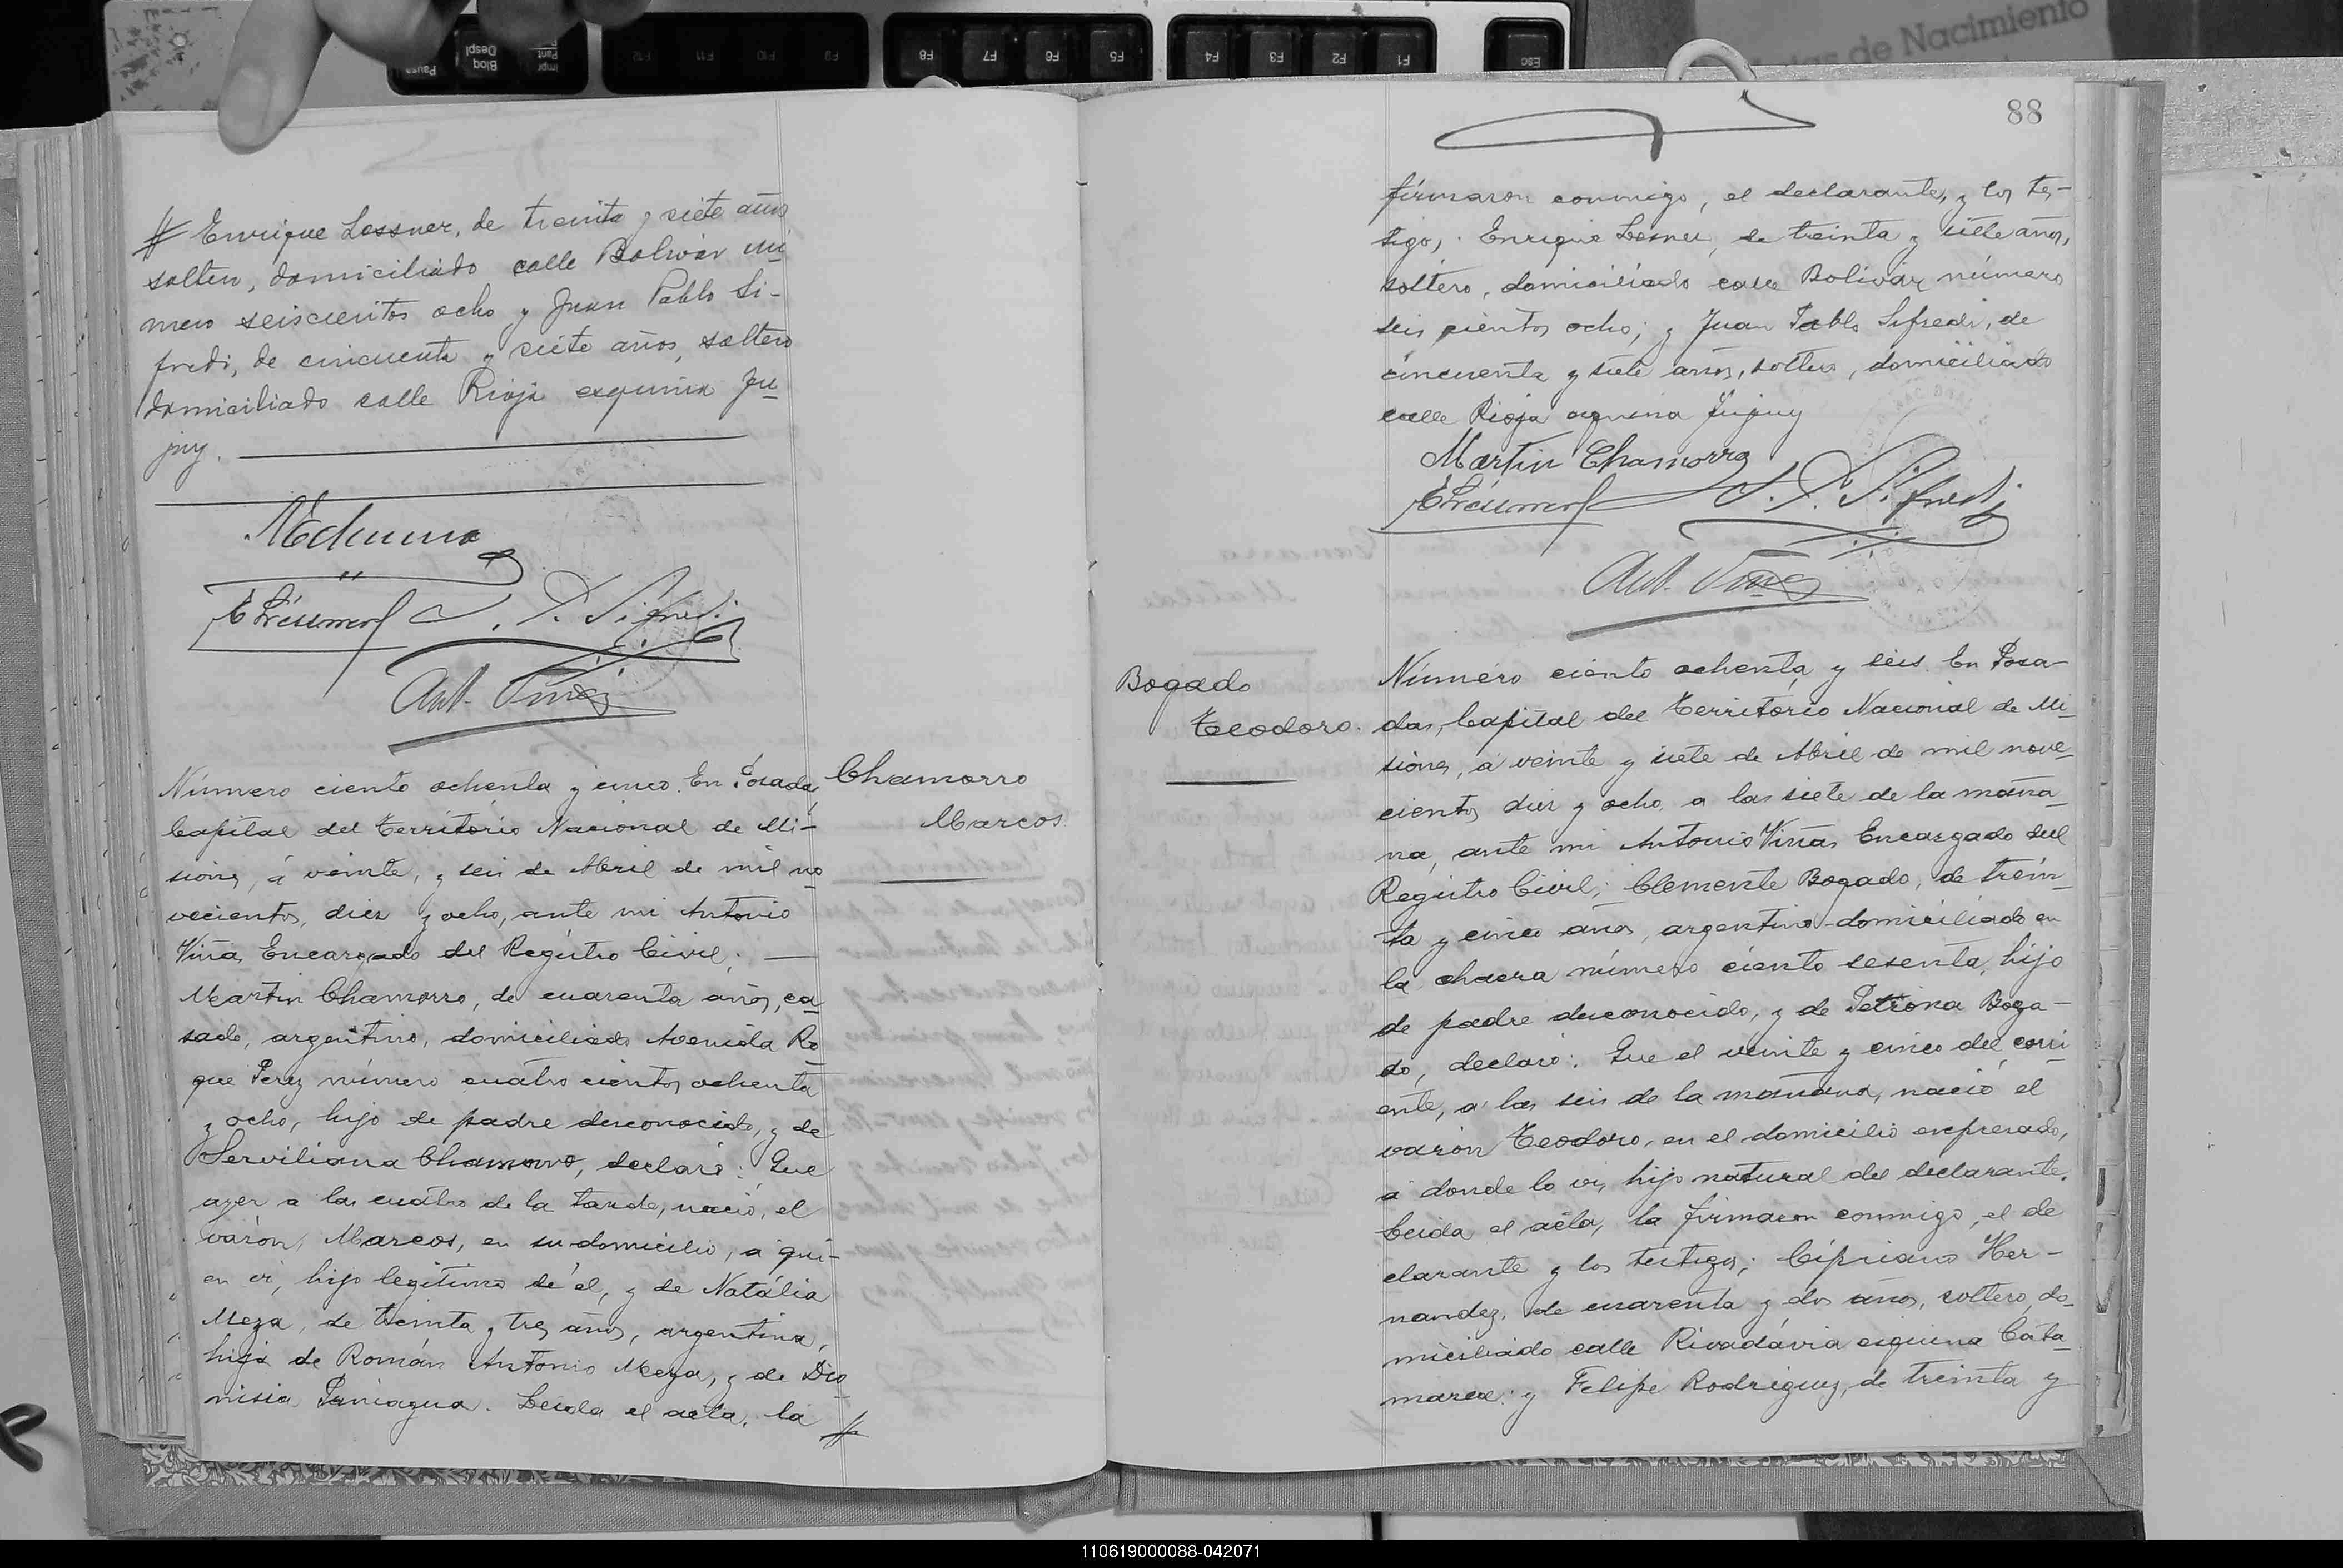 Enrique Lessner, de treinta y siete años
soltero, domiciliado calle Bolivar nú
mero seiscientos ocho y Juan Pablo Si-
fredi, de cincuenta y siete años, soltero
domiciliado calle Rioja esquina Ju
juy.
J. P. Sifredi
Ant. Viñas
Número ciento ochenta y cinco. En Posadas,
Capital del Territorio Nacional de Mi-
siones, á veinte, y seis de Abril de mil no
vecientos, diez y ocho, ante mi Antonio
Viñas Encargado del Registro Civil;
Martin Chamorro, de cuarenta años, ca
sado, argentino, domiciliado Avenida Ro
que Perez número cuatro cientos ochenta
y ocho, hijo de padre desconocido, y de
Serviliana Chamorro, declaró: Que
ayer a las cuatro de la tarde, nació, el
varón, Marcos, en su domicilio, a qui-
en ví, hijo legitimo de él, y de Natália
Meza, de treinta y tres años, argentina,
hija de Román Antonio Meza, y de Dio
nisia Paniagua. Leida el acta, la
Chamorro
Marcos.
88
firmaron conmigo, el declarante, y los tes-
tigos, Enrique Lesner, de treinta y siete años,
soltero, domiciliado calle Bolivar número
seis cientos ocho; y Juan Pablo Sifredi, de
cincuenta y siete años, soltero, domiciliado
calle Rioja esquina Jujuy
Martin Chamorro
J. P. Sifredi
Ant. Viñas
Bogado
Teodoro.
Número ciento ochenta y seis. En Posa-
das, Capital del Territorio Nacional de Mi
siones, a veinte y siete de Abril de mil nove
cientos diez y ocho, a las siete de la maña
na, ante mi Antonio Viñas Encargado del
Registro Civil; Clemente Bogado, de trein-
ta y cinco años, argentino domiciliado en
la chacra número ciento sesenta, hijo
de padre desconocido, y de Petrona Boga-
do, declaró: Que el veinte y cinco del corri
ente, a las seis de la mañana, nació el
varón Teodoro, en el domicilio expresado,
a donde lo vi, hijo natural del declarante.
Leida el acta, la firmaron conmigo, el de
clarante y los testigos; Cipriano Her-
nandez, de cuarenta y dos años, soltero, do-
miciliado calle Rivadávia esquina Cata
marca: y Felipe Rodriguez, de treinta y
Esc F1 F2 F3 F4 F5 F6 F7 F8 F9 F10 F11 F12
Impr Pant
Bloq Despl
Pausa
de Nacimiento
110619000088-042071